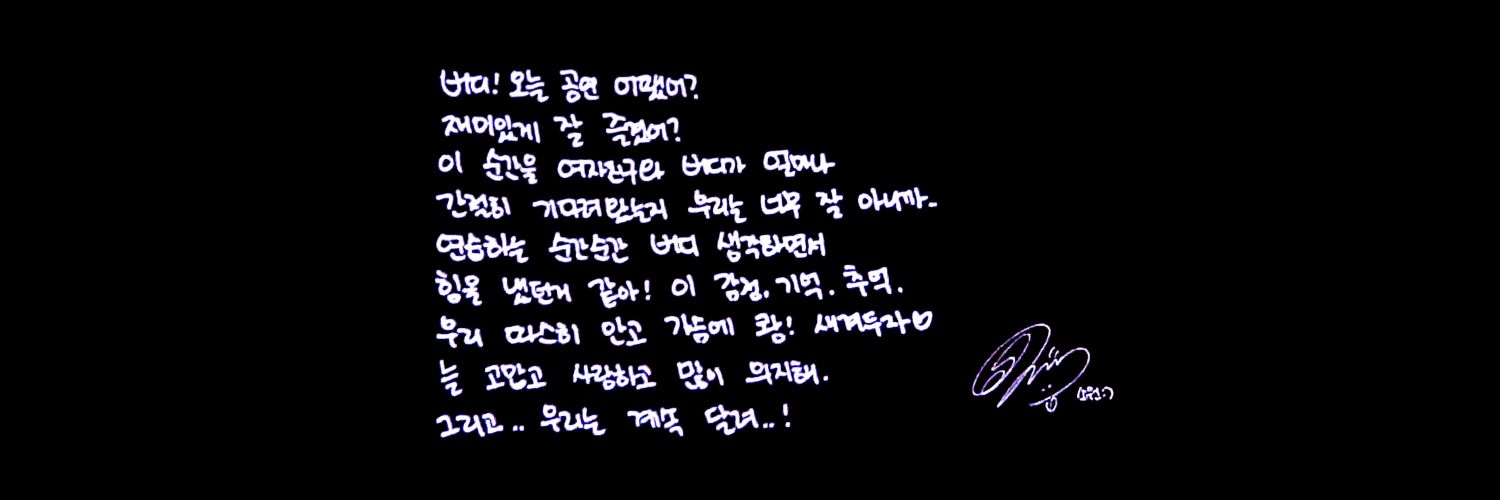 버디! 오늘 공연 어땠어?
재미있게 잘 즐겼어?
이 순간을 여자친구와 버디가 얼마나
간절히 기다려왔는지 우리는 너무 잘 아니까-
연습하는 순간순간 버디 생각하면서
힘을 냈던거 같아! 이 감정. 기억. 추억.
우리 따스히 안고 가슴에 쾅! 새겨두자♡
늘 고맙고 사랑하고 많이 의지해.
그리고.. 우리는 계속 달려..!
소원:)